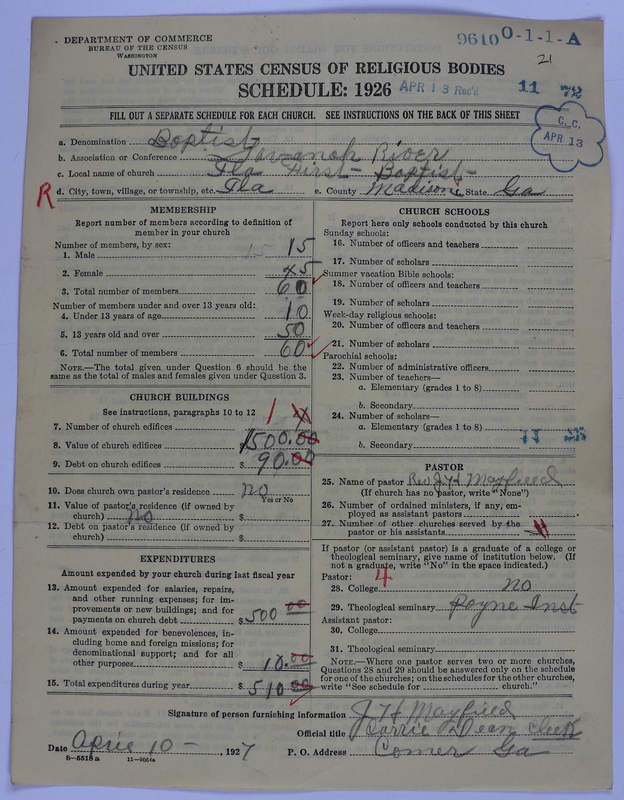 DEPARTMENT OF COMMERCE
BUREAU OF THE CENSUS
WASHINGTON
9610 O-1-1-A
21
UNITED STATES CENSUS OF RELIGIOUS BODIES
SCHEDULE: 1926
APR 13 Rec'd
11
FILL OUT A SEPARATE SCHEDULE FOR EACH CHURCH. SEE INSTRUCTIONS ON THE BACK OF THIS SHEET
C. C.
APR 13
a. Denomination Baptist
b. Association or Conference Savanah River
c. Local name of church Ila First Baptist
R d. City, town, village, or township, etc. Ila e. County Madison State Ga
MEMBERSHIP
Report number of members according to definition of member in your church
Number of members, by sex:
1. Male 15 15
2. Female 45
3. Total number of members 60
Number of members under and over 13 years old:
4. Under 13 years of age 10
5. 13 years old and over 50
6. Total number of members 60
NOTE.—The total given under Question 6 should be the
same as the total of males and females given under Question 3.
CHURCH BUILDINGS
See instructions, paragraphs 10 to 12
7. Number of church edifices 1
8. Value of church edifices 1500.00
9. Debt on church edifices $ 90.00
10. Does church own pastor's residence no
Yes or No
11. Value of pastor's residence (if owned by
church) no $
12. Debt on pastor's residence (if owned by
church) $
EXPENDITURES
Amount expended by your church during last fiscal year
13. Amount expended for salaries, repairs,
and other running expenses; for im-
provements or new buildings; and for
payments on church debt $ 500 00
14. Amount expended for benevolences, in-
cluding home and foreign missions; for
denominational support; and for all
other purposes $ 10.00
15. Total expenditures during year $ 510 00
CHURCH SCHOOLS
Report here only schools conducted by this church
Sunday schools:
16. Number of officers and teachers
17. Number of scholars
Summer vacation Bible schools:
18. Number of officers and teachers
19. Number of scholars
Week-day religious schools:
20. Number of officers and teachers
21. Number of scholars
Parochial schools:
22. Number of administrative officers
23. Number of teachers—
a. Elementary (grades 1 to 8)
b. Secondary
24. Number of scholars—
a. Elementary (grades 1 to 8)
b. Secondary
11
PASTOR
25. Name of pastor Rev J H Mayfield
(If church has no pastor, write "None")
26. Number of ordained ministers, if any, em-
ployed as assistant pastors
27. Number of other churches served by the
pastor or his assistants 4
If pastor (or assistant pastor) is a graduate of a college or
theological seminary, give name of institution below. (If
not a graduate, write "No" in the space indicated.)
Pastor: 4
28. College no
29. Theological seminary Payne Inst
Assistant pastor:
30. College
31. Theological seminary
NOTE.—Where one pastor serves two or more churches,
Questions 28 and 29 should be answered only on the schedule
for one of the churches; on the schedules for the other churches,
write "See schedule for church."
Signature of person furnishing information J H Mayfield
Official title Carrie Dean Clerk
Date April 10 - , 1927 P. O. Address Comer Ga
8—5518a 11—9051a